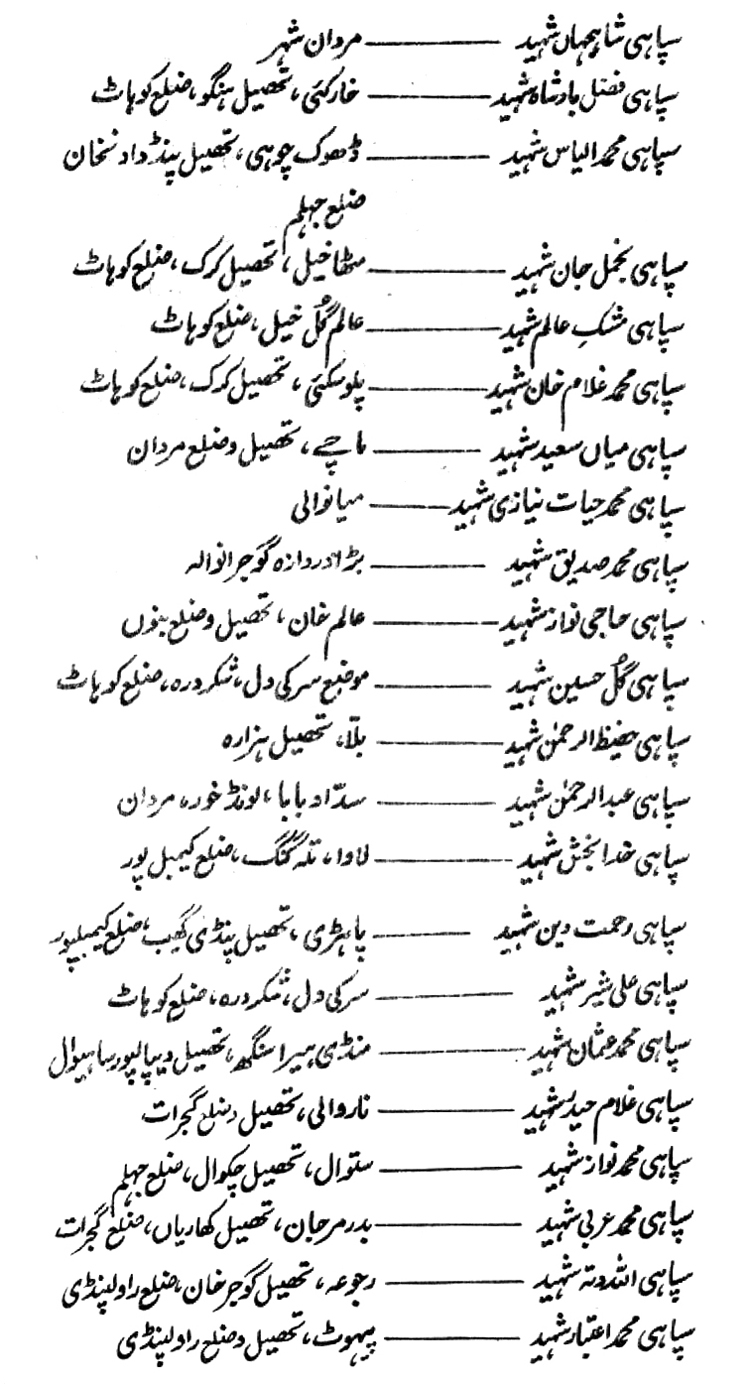 سپاہی شاہجہاں شہید ——— مردان شہر
سپاہی فضل بادشاہ شہید ——— خارکئی، تحصیل ہنگو، ضلع کوہاٹ
سپاہی محمد الیاس شہید ——— ڈھوک چوہی، تحصیل پنڈدادنخان
ضلع جہلم
سپاہی بجمل جان شہید ——— مٹھاخیل، تحصیل کرک، ضلع کوہاٹ
سپاہی مشکِ عالم شہید ——— عالم گُل خیل، ضلع کوہاٹ
سپاہی محمد غلام خان شہید ——— پلوسکئی، تحصیل کرک، ضلع کوہاٹ
سپاہی میاں سعید شہید ——— ماچے، تحصیل و ضلع مردان
سپاہی محمد حیات نیازی شہید ——— میانوالی
سپاہی محمد صدیق شہید ——— بڑا دروازہ گوجرانوالہ
سپاہی حاجی نواز شہید ——— عالم خان، تحصیل و ضلع بنوں
سپاہی گُل حسین شہید ——— موضع سرکی دل، شکردرہ، ضلع کوہاٹ
سپاہی حفیظ الرحمٰن شہید ——— بلّا، تحصیل ہزارہ
سپاہی عبدالرحمٰن شہید ——— سدّاد بابا، لونڈ غور، مردان
سپاہی خدا بخش شہید ——— لاوا، تلہ گنگ، ضلع کیمبل پور
سپاہی رحمت دین شہید ——— پاہڑی، تحصیل پنڈی گھیب، ضلع کیمبلپور
سپاہی علی شیر شہید ——— سرکی دل، شکردرہ، ضلع کوہاٹ
سپاہی محمد عثمان شہید ——— منڈی ہیرا سنگھ، تحصیل دیپالپور ساہیوال
سپاہی غلام حیدر شہید ——— ناروالی، تحصیل و ضلع گجرات
سپاہی محمد نواز شہید ——— ستوال، تحصیل چکوال، ضلع جہلم
سپاہی محمد عربی شہید ——— بدر مرجان، تحصیل کھاریاں، ضلع گجرات
سپاہی اللہ دتہ شہید ——— رجوعہ، تحصیل گوجر خان، ضلع راولپنڈی
سپاہی محمد اعتبار شہید ——— پیہوٹ، تحصیل و ضلع راولپنڈی